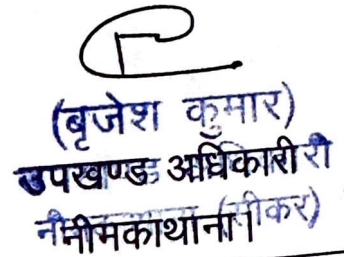 (बृजेश कुमार)
उपखण्ड अधिकारी री
नीमकाथाना। (सीकर)